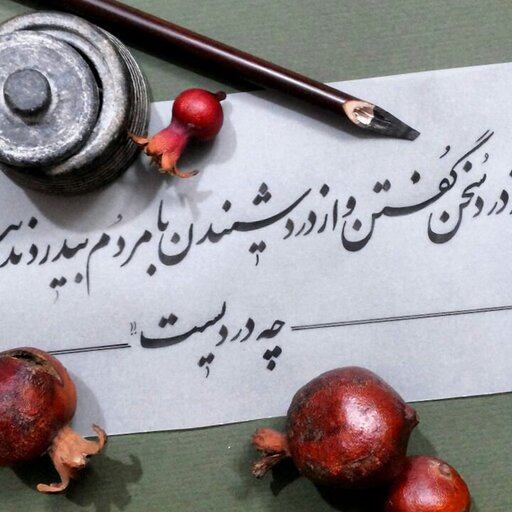 درد سخن گفتن و از درد شنیدن با مردم بیدرد
چه دردیست !!